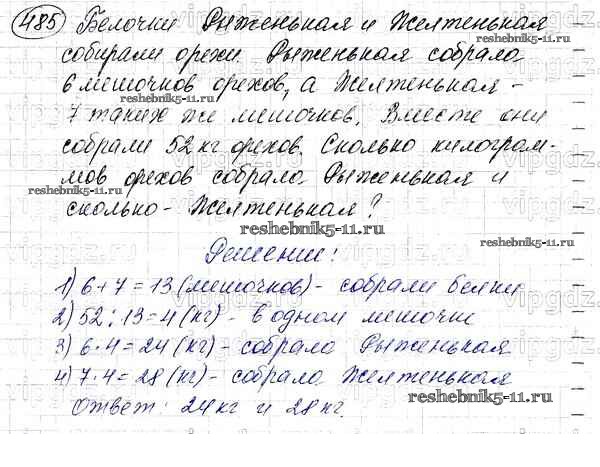 485 Белочки Рыженькая и Желтенькая
собирали орехи. Рыженькая собрала
6 мешочков орехов, а Желтенькая -
reshebnik5-11.ru
7 таких же мешочков. Вместе они
собрали 52 кг орехов. Сколько килограм-
мов орехов собрала Рыженькая и
reshebnik5-11.ru
сколько - Желтенькая?
reshebnik5-11.ru
Решение:
1) 6+7=13 (мешочков) - собрали белки
2) 52:13=4 (кг) - в одном мешочке
3) 6·4=24 (кг) - собрала Рыженькая
4) 7·4=28 (кг) - собрала Желтенькая
reshebnik5-11.ru
Ответ: 24 кг и 28 кг.